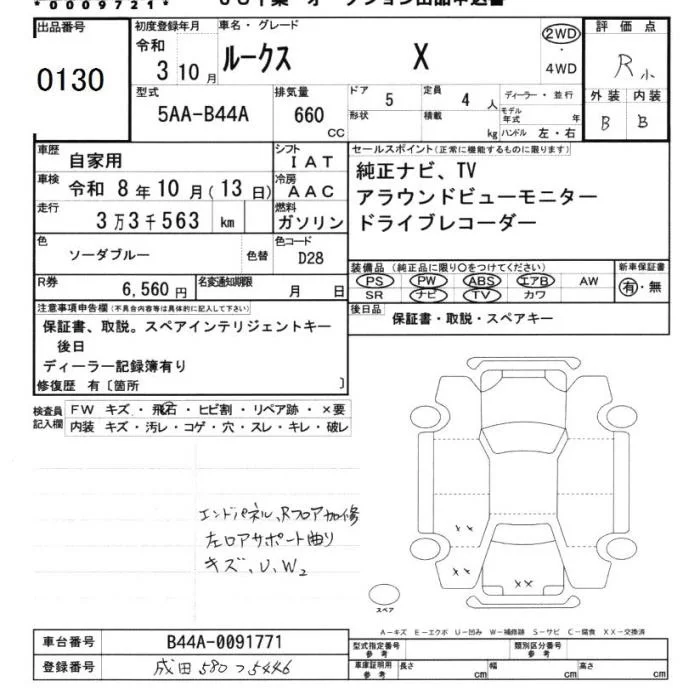 *0009721*
オークション出品申込書
出品番号
0130
初度登録年月
令和
3 10 月
車名・グレード
ルークス X
2WD
・
4WD
評価点
R 小
外装 内装
B B
型式
5AA-B44A
排気量
660
CC
ドア
5
形状
定員
4 人
積載
kg
ディーラー・並行
モデル年式 年
ハンドル 左・右
車歴
自家用
シフト
I A T
車検
令和 8 年 10 月( 13 日)
冷房
A A C
走行
3 万 3 千 563 km
燃料
ガソリン
色
ソーダブルー
色替
色コード
D28
R券
6,560 円
名変通知期限
月 日
セールスポイント(正常に機能するものに限ります)
純正ナビ、TV
アラウンドビューモニター
ドライブレコーダー
装備品(純正品に限り〇をつけてください)
PS PW ABS エアB AW
SR ナビ TV カワ
新車保証書
有・無
後日品
保証書・取説・スペアキー
注意事項申告欄(不具合内容等は具体的に記入して下さい)
保証書、取説。スペアインテリジェントキー
後日
ディーラー記録簿有り
修復歴 有〔箇所 〕
検査員記入欄
FW キズ・飛石・ヒビ割・リペア跡・×要
内装 キズ・汚レ・コゲ・穴・スレ・キレ・破レ
エンドパネル、Rフロア加修
左ロアサポート曲り
キズ、U、W2
××
××
××
スペア
A-キズ E-エクボ U-凹み W-補修跡 S-サビ C-腐食 XX-交換済
車台番号
B44A-0091771
登録番号
成田 580 つ 5446
型式指定番号
参考
類別区分番号
参考
車庫証明用
参考
長さ cm
幅 cm
高さ cm